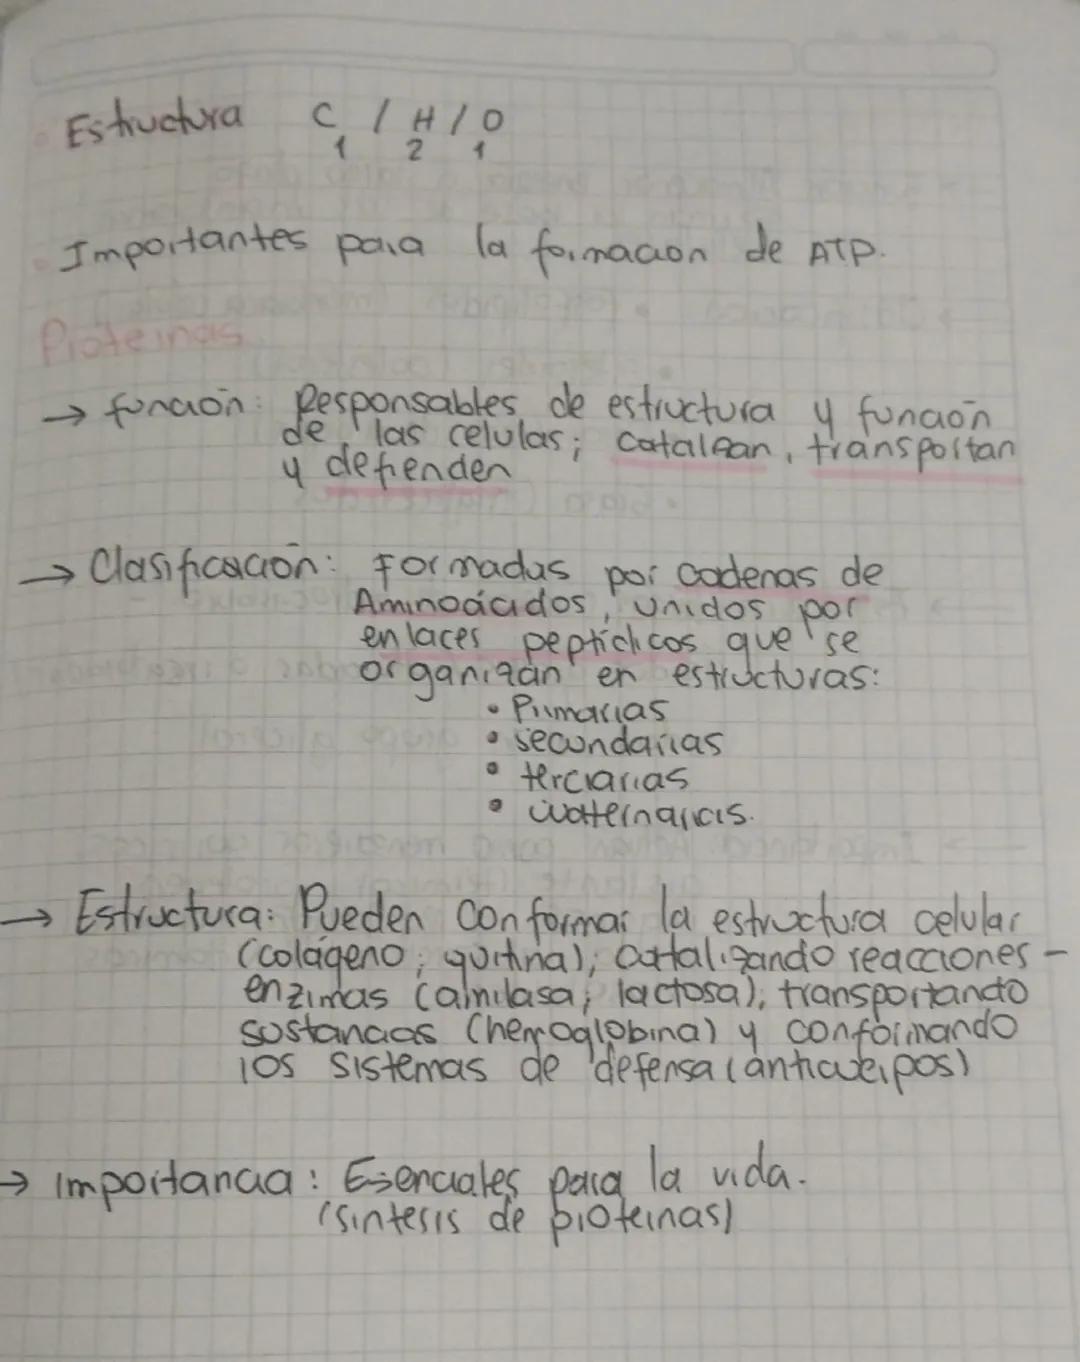 Estructura C / H / O
1 2 1
Importantes para la formacion de ATP.
Proteinas
→ función: Responsables de estructura y función
de las celulas; catalizan, transportan
y defienden
→ Clasificación: Formadas por cadenas de
Aminoácidos, unidos por
enlaces peptídicos que se
organizan en estructuras:
• Primarias
• secundarias
• terciarias
• cuaternarias.
→ Estructura: Pueden conformar la estructura celular
(colágeno; quitina); catalizando reacciones -
enzimas (amilasa; lactosa); transportando
sustancias (hemoglobina) y conformando
los sistemas de defensa (anticuerpos)
→ Importancia: Esenciales para la vida.
(síntesis de proteinas)